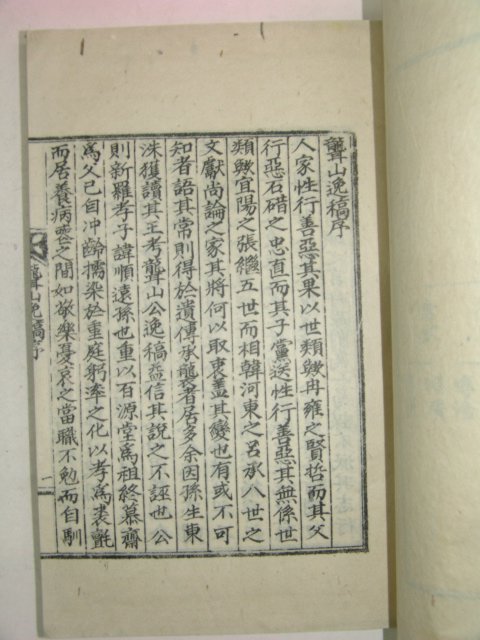 聾山逸稿序
人家性行善惡其果以世類歟冉雍之賢哲而其父
行惡石碏之忠直而其子黨逆性行善惡其無係世
類歟宜陽之張繼五世而相韓河東之呂承八世之
文獻尚論之家其將何以取衷盖其變也有或不可
知者語其常則得於遺傳承襲者居多余因孫生東
洙獲讀其王考聾山公逸稿益信其說之不誣也公
則新羅孝子諱順遠孫也重以百源堂爲祖終慕齋
爲父已自冲齡擩染於畫庭躬率之化以孝爲裘氈
而居養病喪之間如欲樂憂哀之當職不勉而自馴
聾山逸稿序
一